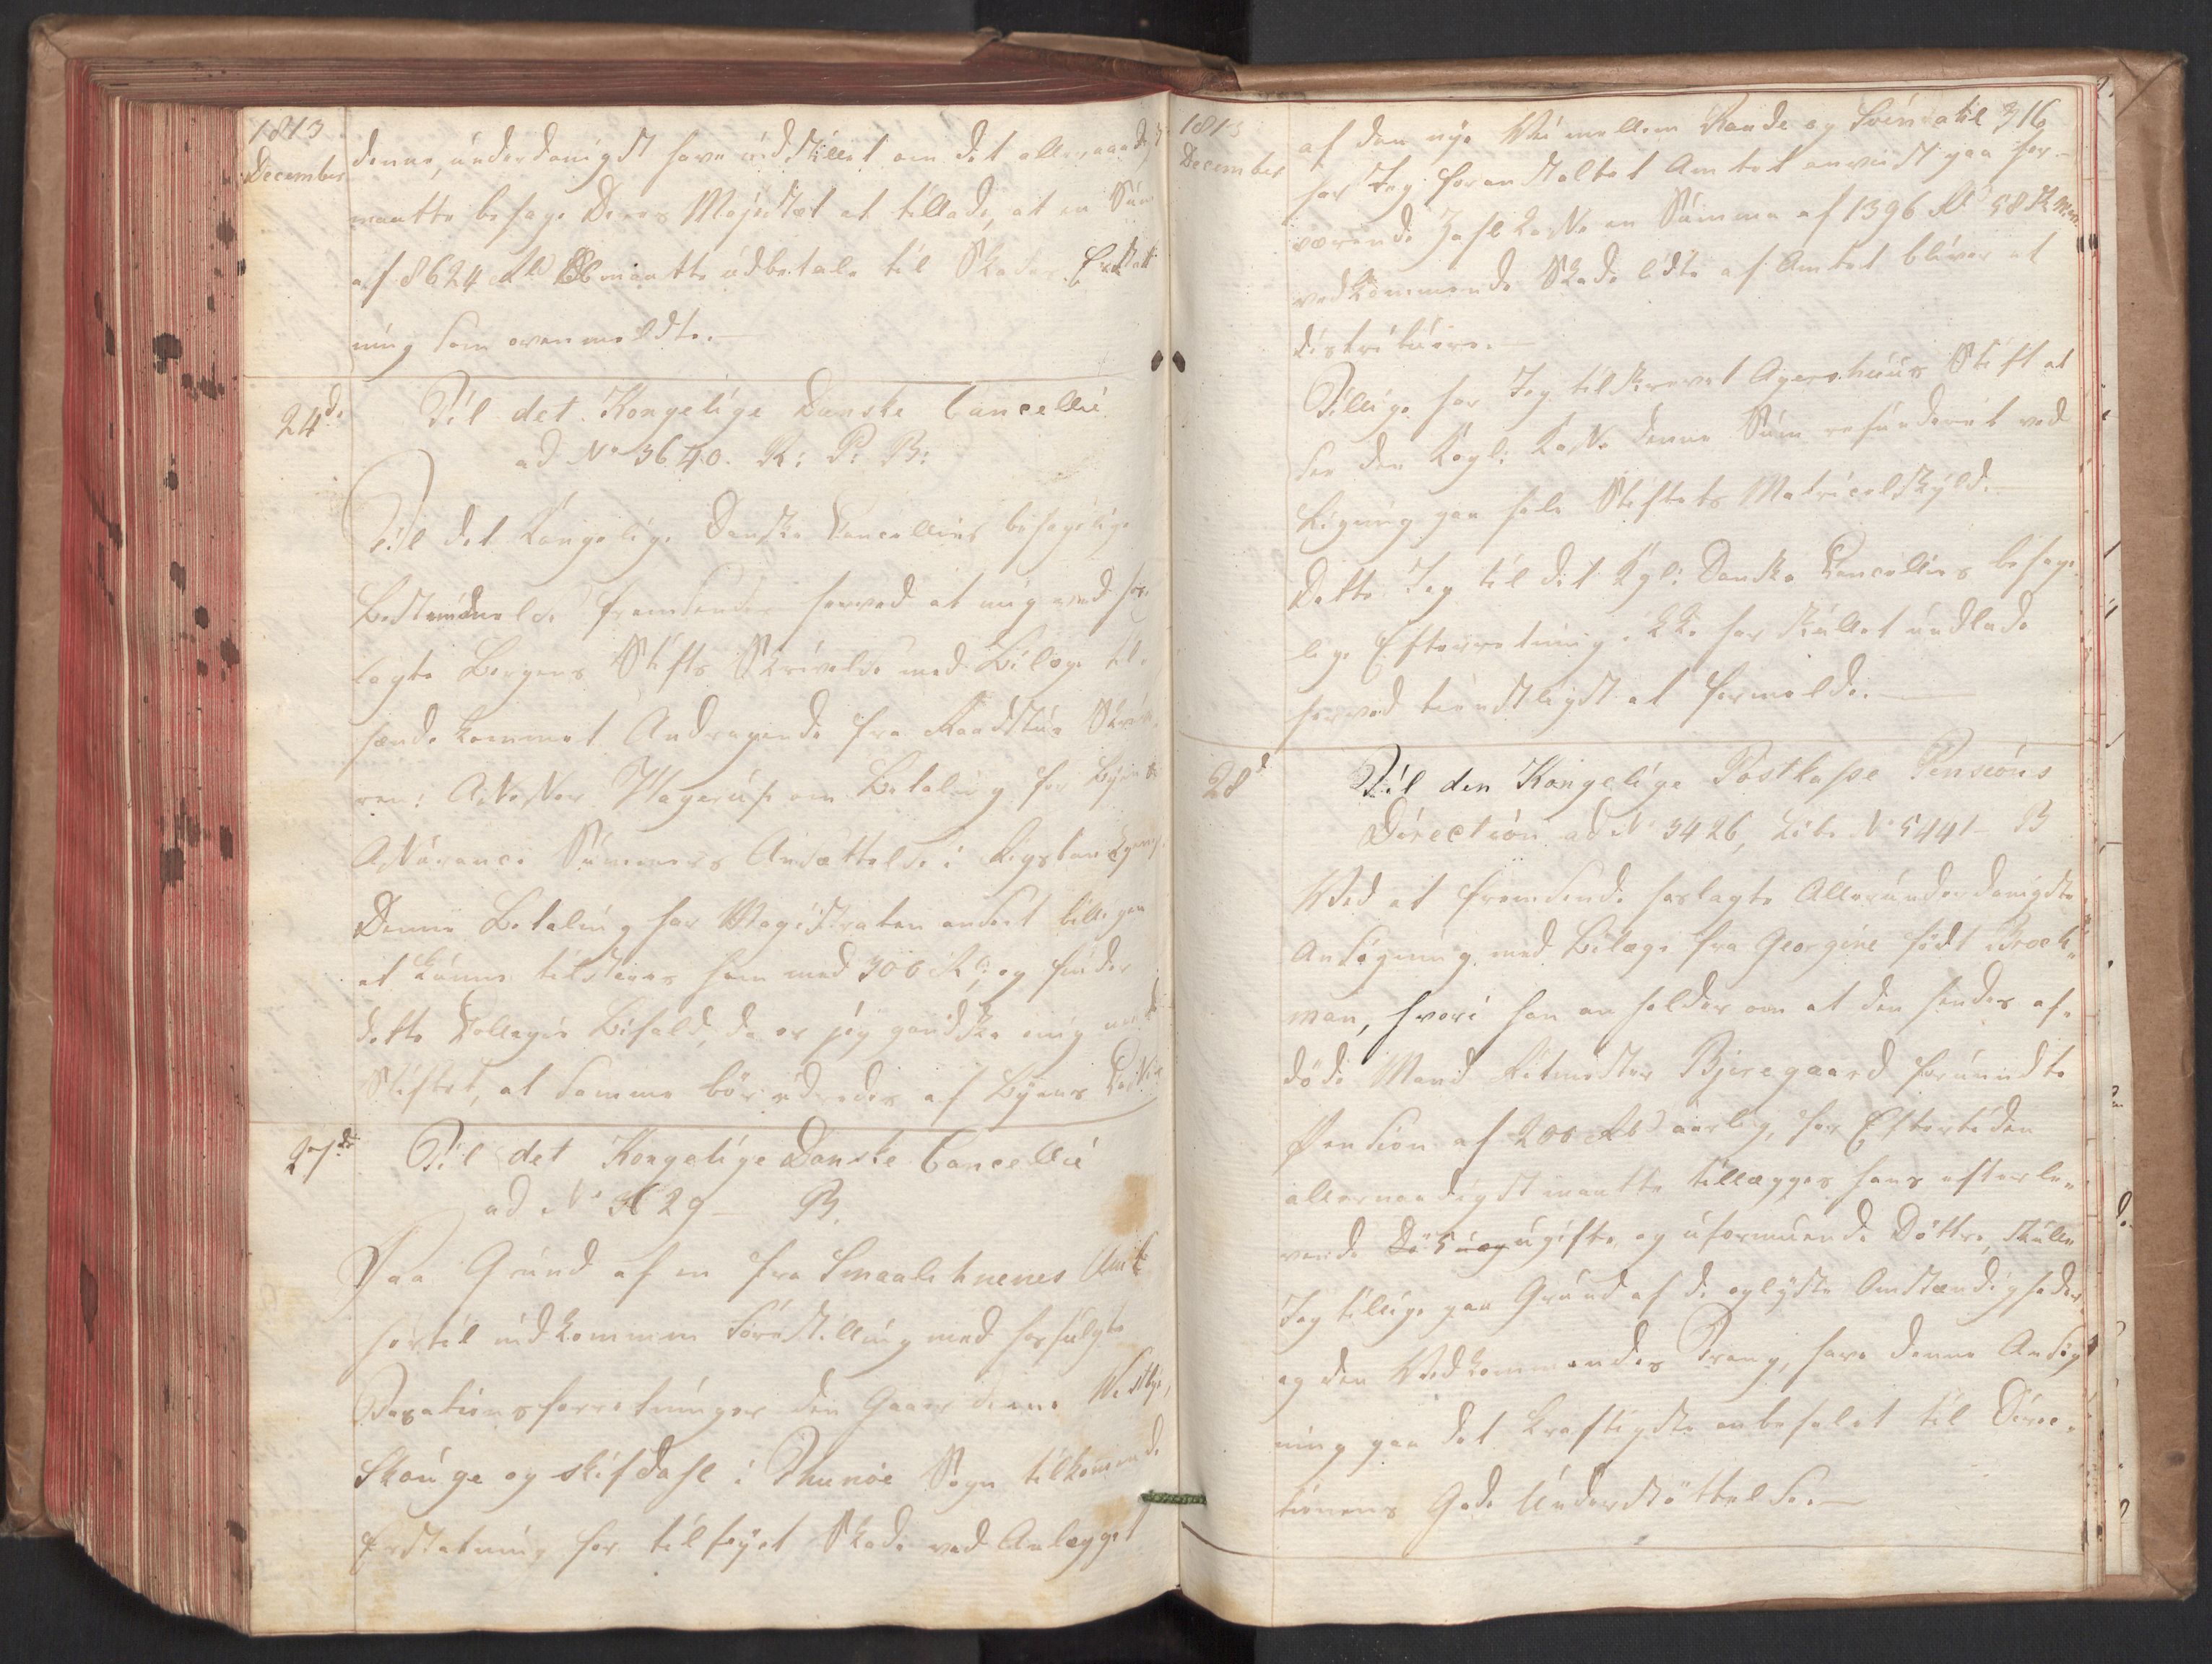 1813
December
denne, underdanigst have indstillet om det allernaadigst
maatte behage Deres Majestæt at tillade, at en Sum
af 8624 Rd maatte udbetales til Skades Erstatt
ning som ovenmeldte.
24de
Til det Kongelige Danske Cancellie
ad No 3640. R: P: B:
Til det Kongelige Danske Cancellies behagelige
Bestemmelse fremsendes herved et mig med hos-
lagte Bergens Stifts Skrivelse med Bilage til-
hænde kommet Andragende fra Raadstue Skriv
ren: Assessor Hagerup om Betaling for Byens
Assurance Summers Ansættelse i Rigsbankpenge.
Denne Betaling har Magistraten anseet billigen
at kunne tilstaaes ham med 300 Rd: og finder
dette Collegii Bifald, da er jeg gandske enig med
Stiftet, at samme bör udredes af Byens Casse
27de
Til det Kongelige Danske Cancellie
ad No 3829 - B.
Paa Grund af en fra Smaalehnenes Amt
hertil indkommen Forestilling med hosfulgte
Taxationsforretninger den Gaardene
Skouge og Skifdahl i Thunöe Sogn tilkommende
Erstatning for tilföyet Skade ved Anlægget
1813
December
af den nye Vei mellem Rande og Svinatil 316
har Jeg foranstaltet Amtet anviist paa her-
værende Zahlkasse en Summa af 1396 Rd 58 s
vedkommende Skadelidte af Amtet bliver at
distribuere.
Tillige har Jeg tilskrevet Agershuus Stift at
see den Kongl: Kasse denne Sum refunderet ved
Ligning paa hele Stiftets Matriculskyld.
Dette Jeg til det Kgl: Danske Cancellies behage-
lige Efterretning ikke har skullet undlade
herved tienstligst at formelde.
28d
Til den Kongelige Postkasse Pensions
Direction ad No 3426, Litr. No 5441 - B
Ved at fremsende hoslagte Allerunderdanigste
Ansögning med Bilage fra Georgine födt Brock-
man, hvori hun anholder om at den hendes af-
döde Mand Ritmester Bjeregaard forundte
Pension af 200 Rbd aarlig, for Eftertiden
allernaadigst maatte tillægges hans efterle-
vende ugifte og uformuende Döttre, skulle
Jeg tillige paa Grund af de oplyste Omstændigheder
og den Vedkommendes Trang, have denne Ansög
ning paa det kraftigste anbefalet til Direc-
tionens Gode Understöttelse.